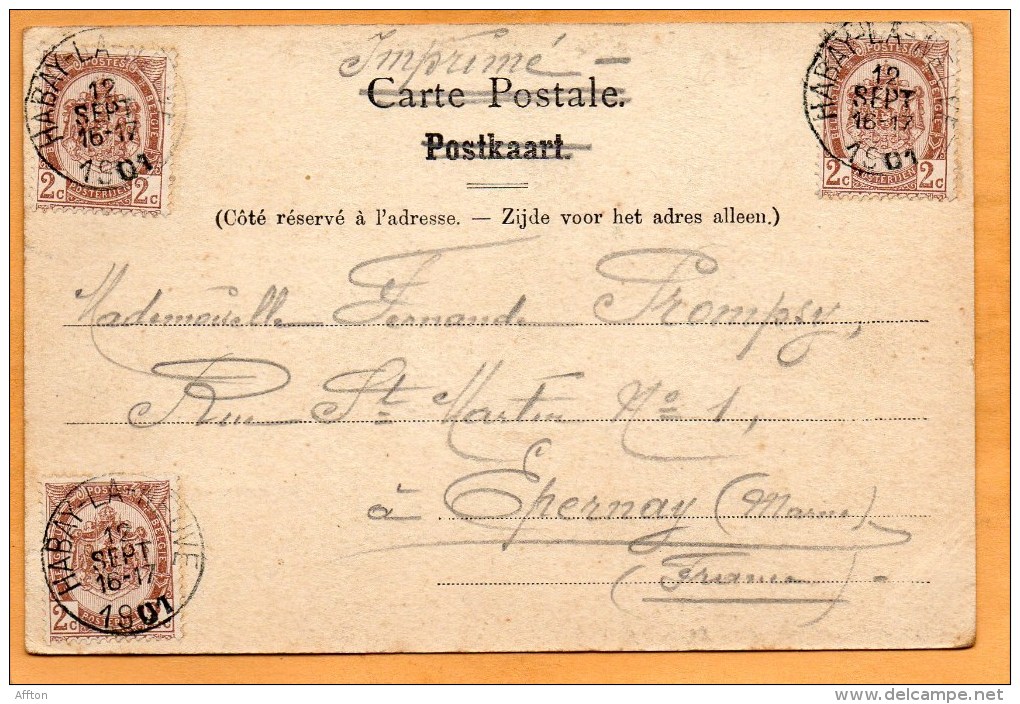 Imprimé —
Carte Postale.
Postkaart.
(Côté réservé à l'adresse. — Zijde voor het adres alleen.)
HABAY-LA-NEUVE
12
SEPT
16-17
1901
POSTES
2c 2c
POSTERIJEN
HABAY-LA-NEUVE
12
SEPT
16-17
1901
POSTES
BELGIQUE
2c 2c
POSTERIJEN
Mademoiselle Fernande Prompsy,
Rue St Martin No 1,
à Epernay (Marne)
(France) -
HABAY-LA-NEUVE
12
SEPT
16-17
1901
POSTES
BELGIQUE
2c 2c
Affton
www.delcampe.net